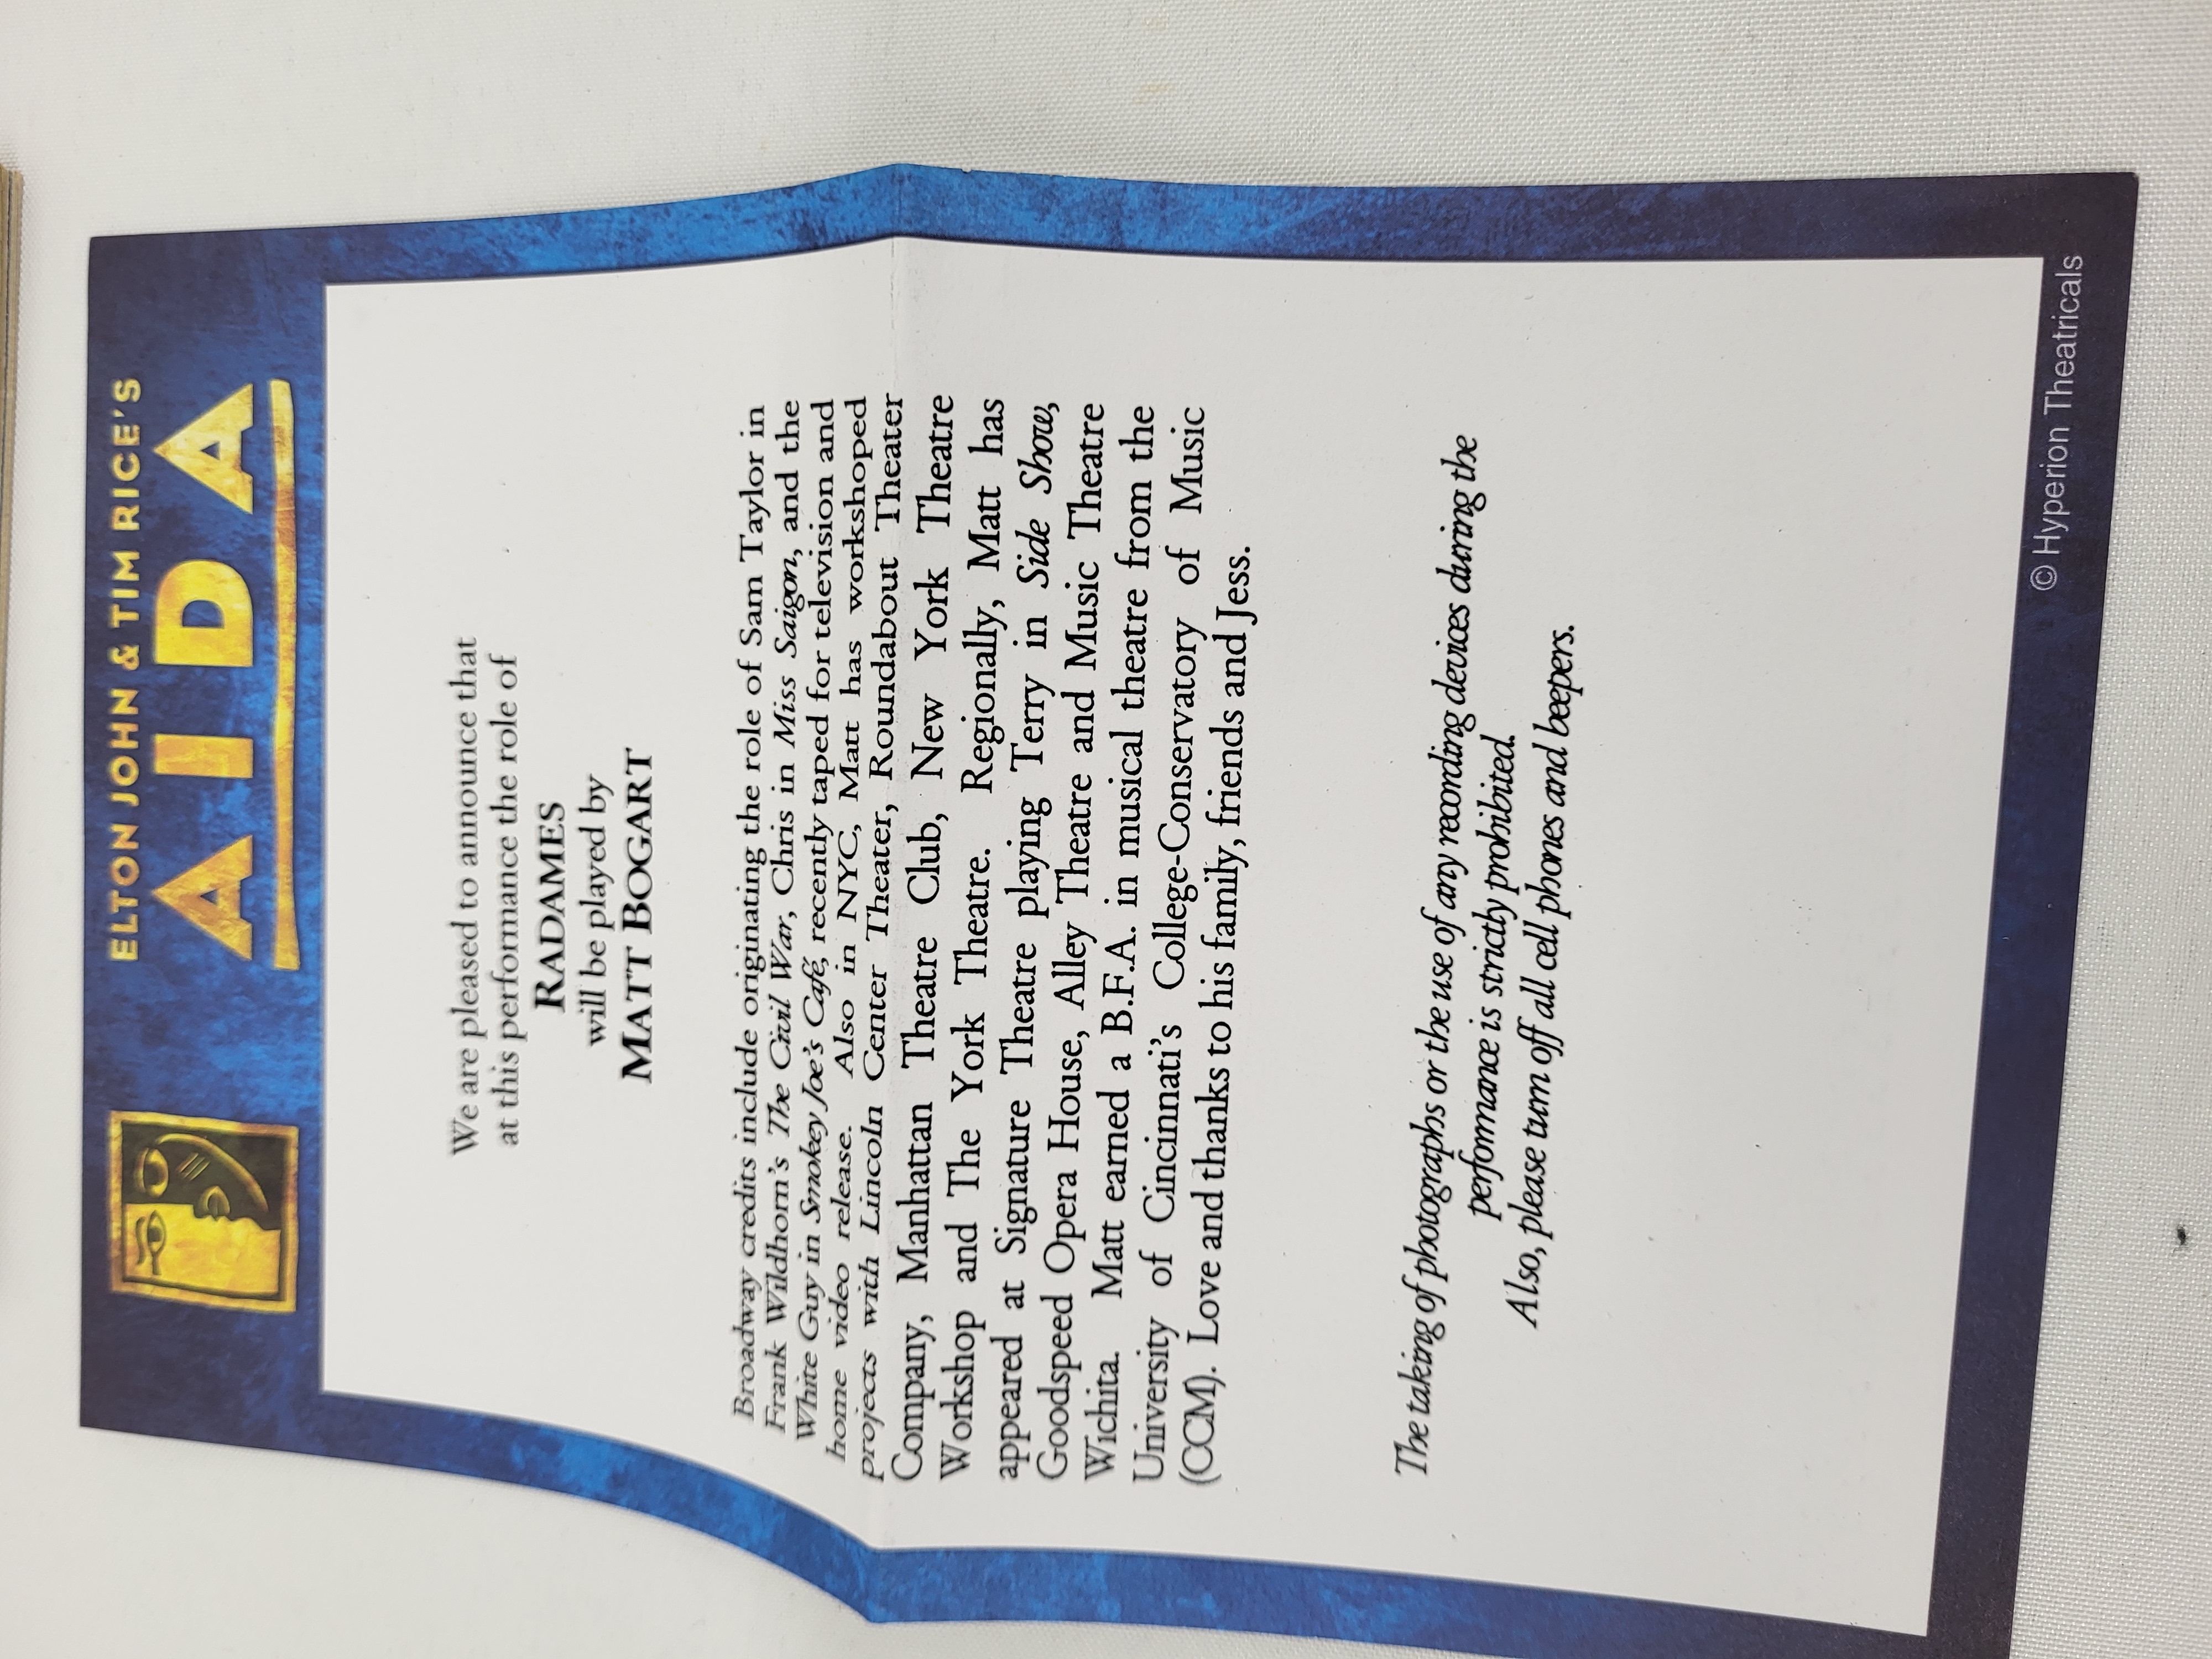 ELTON JOHN & TIM RICE'S
AIDA
We are pleased to announce that
at this performance the role of
RADAMES
will be played by
MATT BOGART
Broadway credits include originating the role of Sam Taylor in
Frank Wildhorn's The Civil War, Chris in Miss Saigon, and the
White Guy in Smokey Joe's Café, recently taped for television and
home video release. Also in NYC, Matt has workshoped
projects with Lincoln Center Theater, Roundabout Theater
Company, Manhattan Theatre Club, New York Theatre
Workshop and The York Theatre. Regionally, Matt has
appeared at Signature Theatre playing Terry in Side Show,
Goodspeed Opera House, Alley Theatre and Music Theatre
Wichita. Matt earned a B.F.A. in musical theatre from the
University of Cincinnati's College-Conservatory of Music
(CCM). Love and thanks to his family, friends and Jess.
The taking of photographs or the use of any recording devices during the
performance is strictly prohibited.
Also, please turn off all cell phones and beepers.
© Hyperion Theatricals